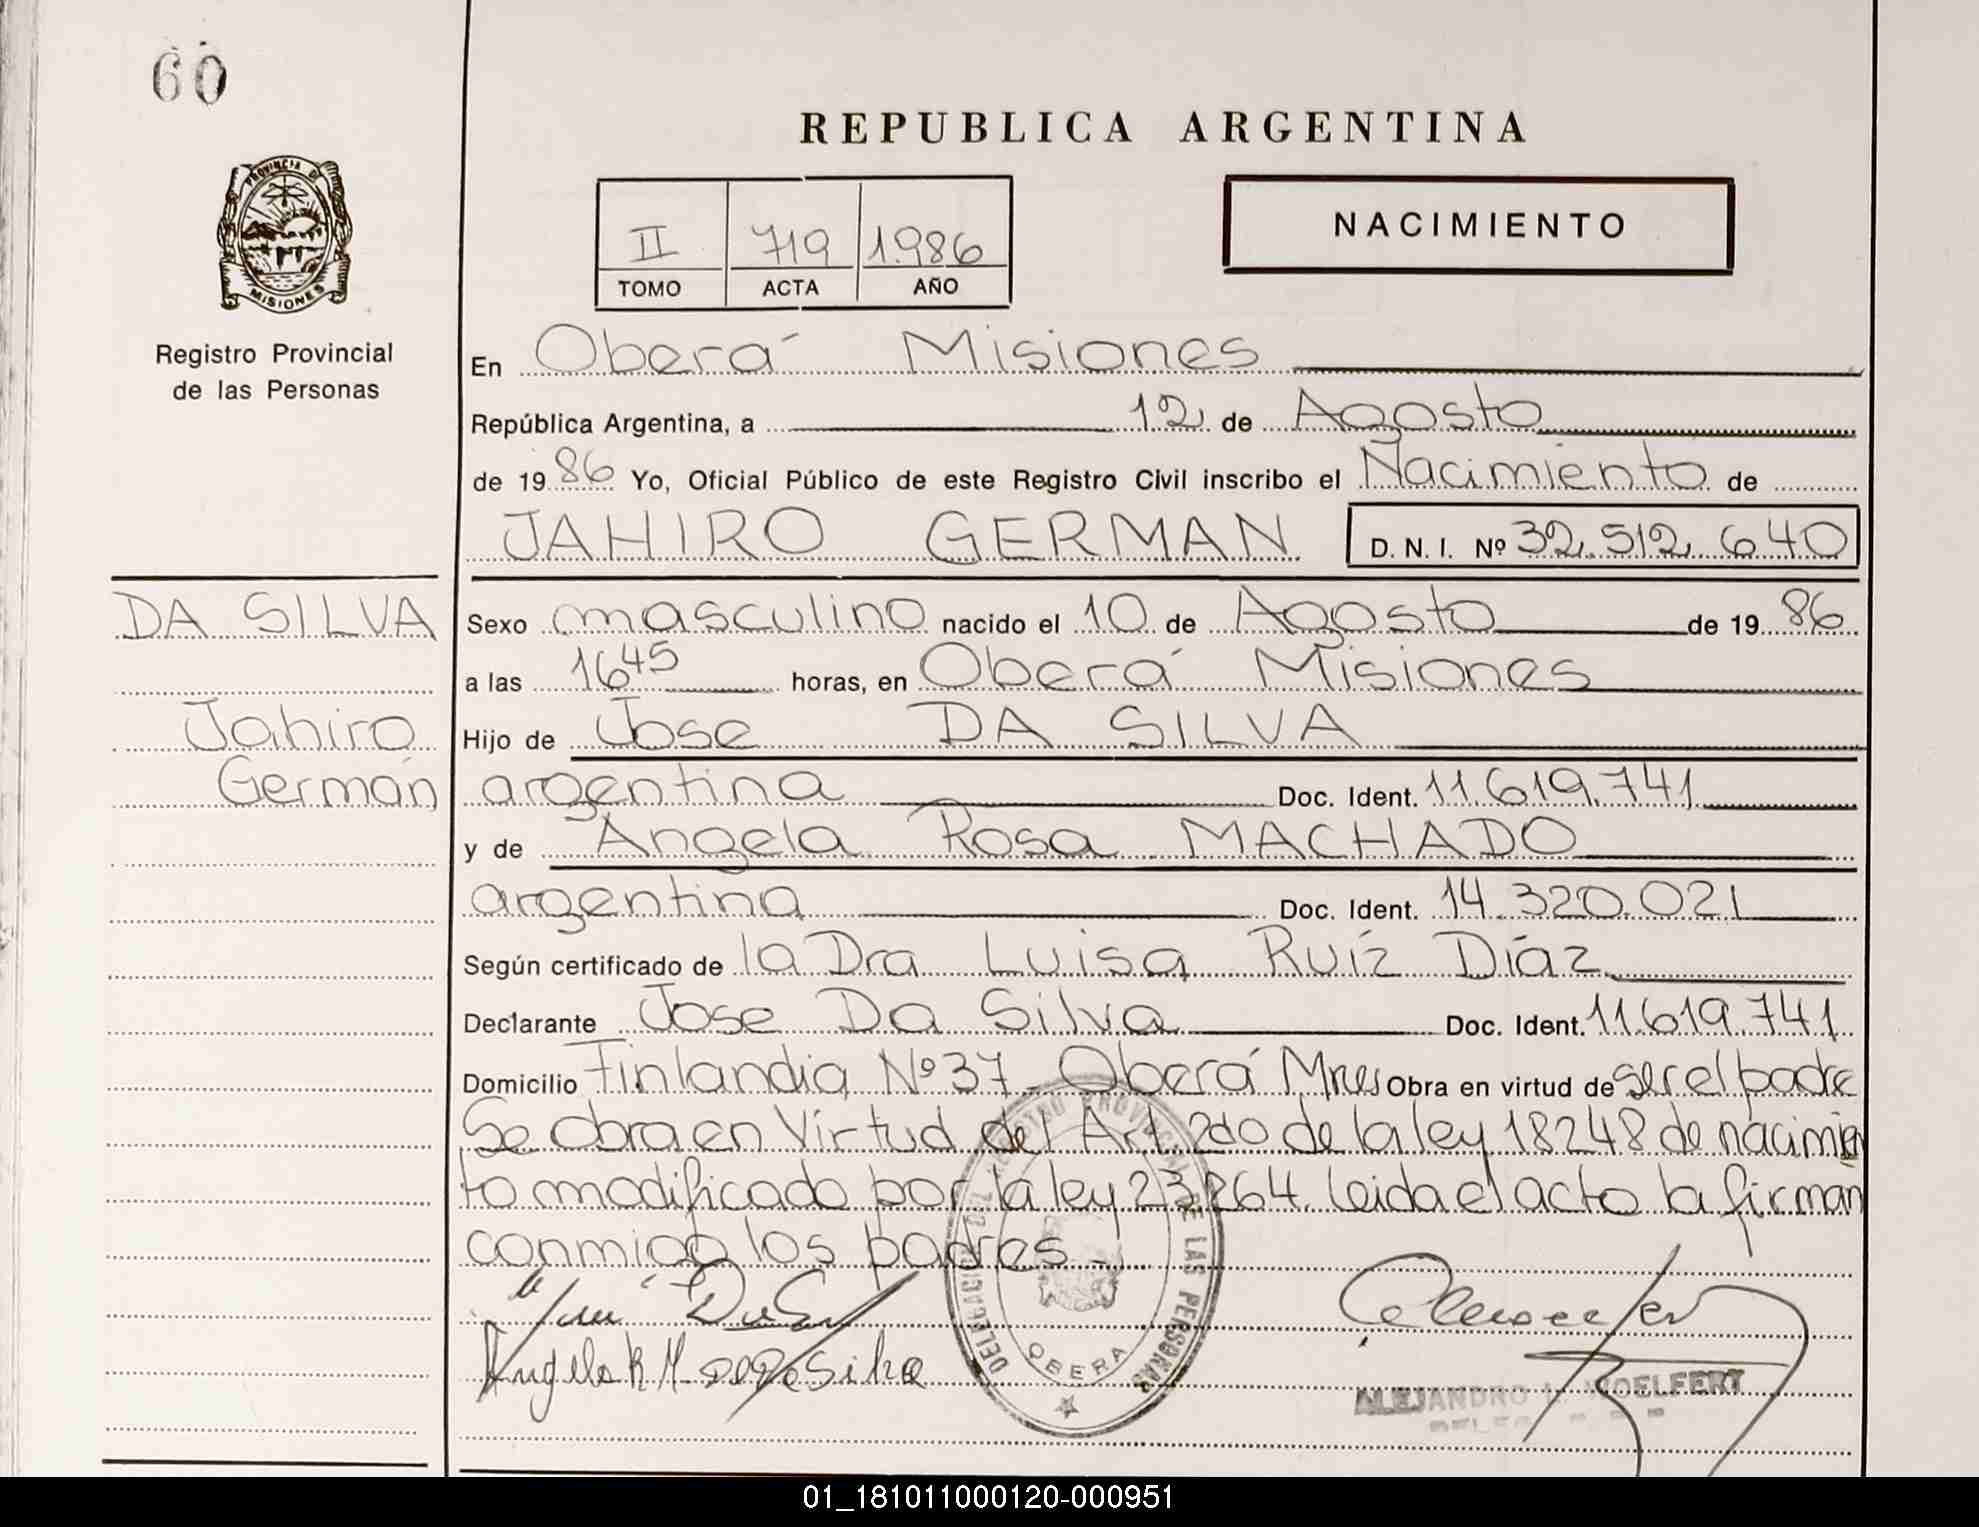 60
REPUBLICA ARGENTINA
PROVINCIA DE
MISIONES
II 719 1.986
TOMO ACTA AÑO
NACIMIENTO
Registro Provincial
de las Personas
En Oberá Misiones
República Argentina, a 12 de Agosto
de 1986 Yo, Oficial Público de este Registro Civil inscribo el Nacimiento de
JAHIRO GERMAN D. N. I. Nº 32.512.640
DA SILVA
Jahiro
Germán
Sexo masculino nacido el 10 de Agosto de 1986
a las 16 45 horas, en Oberá Misiones
Hijo de Jose DA SILVA
argentina Doc. Ident. 11.619.741
y de Angela Rosa MACHADO
argentina Doc. Ident. 14.320.021
Según certificado de la Dra Luisa Ruíz Díaz
Declarante Jose Da Silva Doc. Ident. 11.619.741
Domicilio Finlandia Nº 37 - Oberá Mnes Obra en virtud de ser el padre
Se obra en Virtud del Art. 2do de la ley 18248 de nacimien
to modificado por la ley 23264. leida el acto la firman
conmigo los padres
DELEGACION DEL REGISTRO PROVINCIAL DE LAS PERSONAS
OBERA
Angela R M de Da Silva
ALEJANDRO L. WOELFERT
01_181011000120-000951